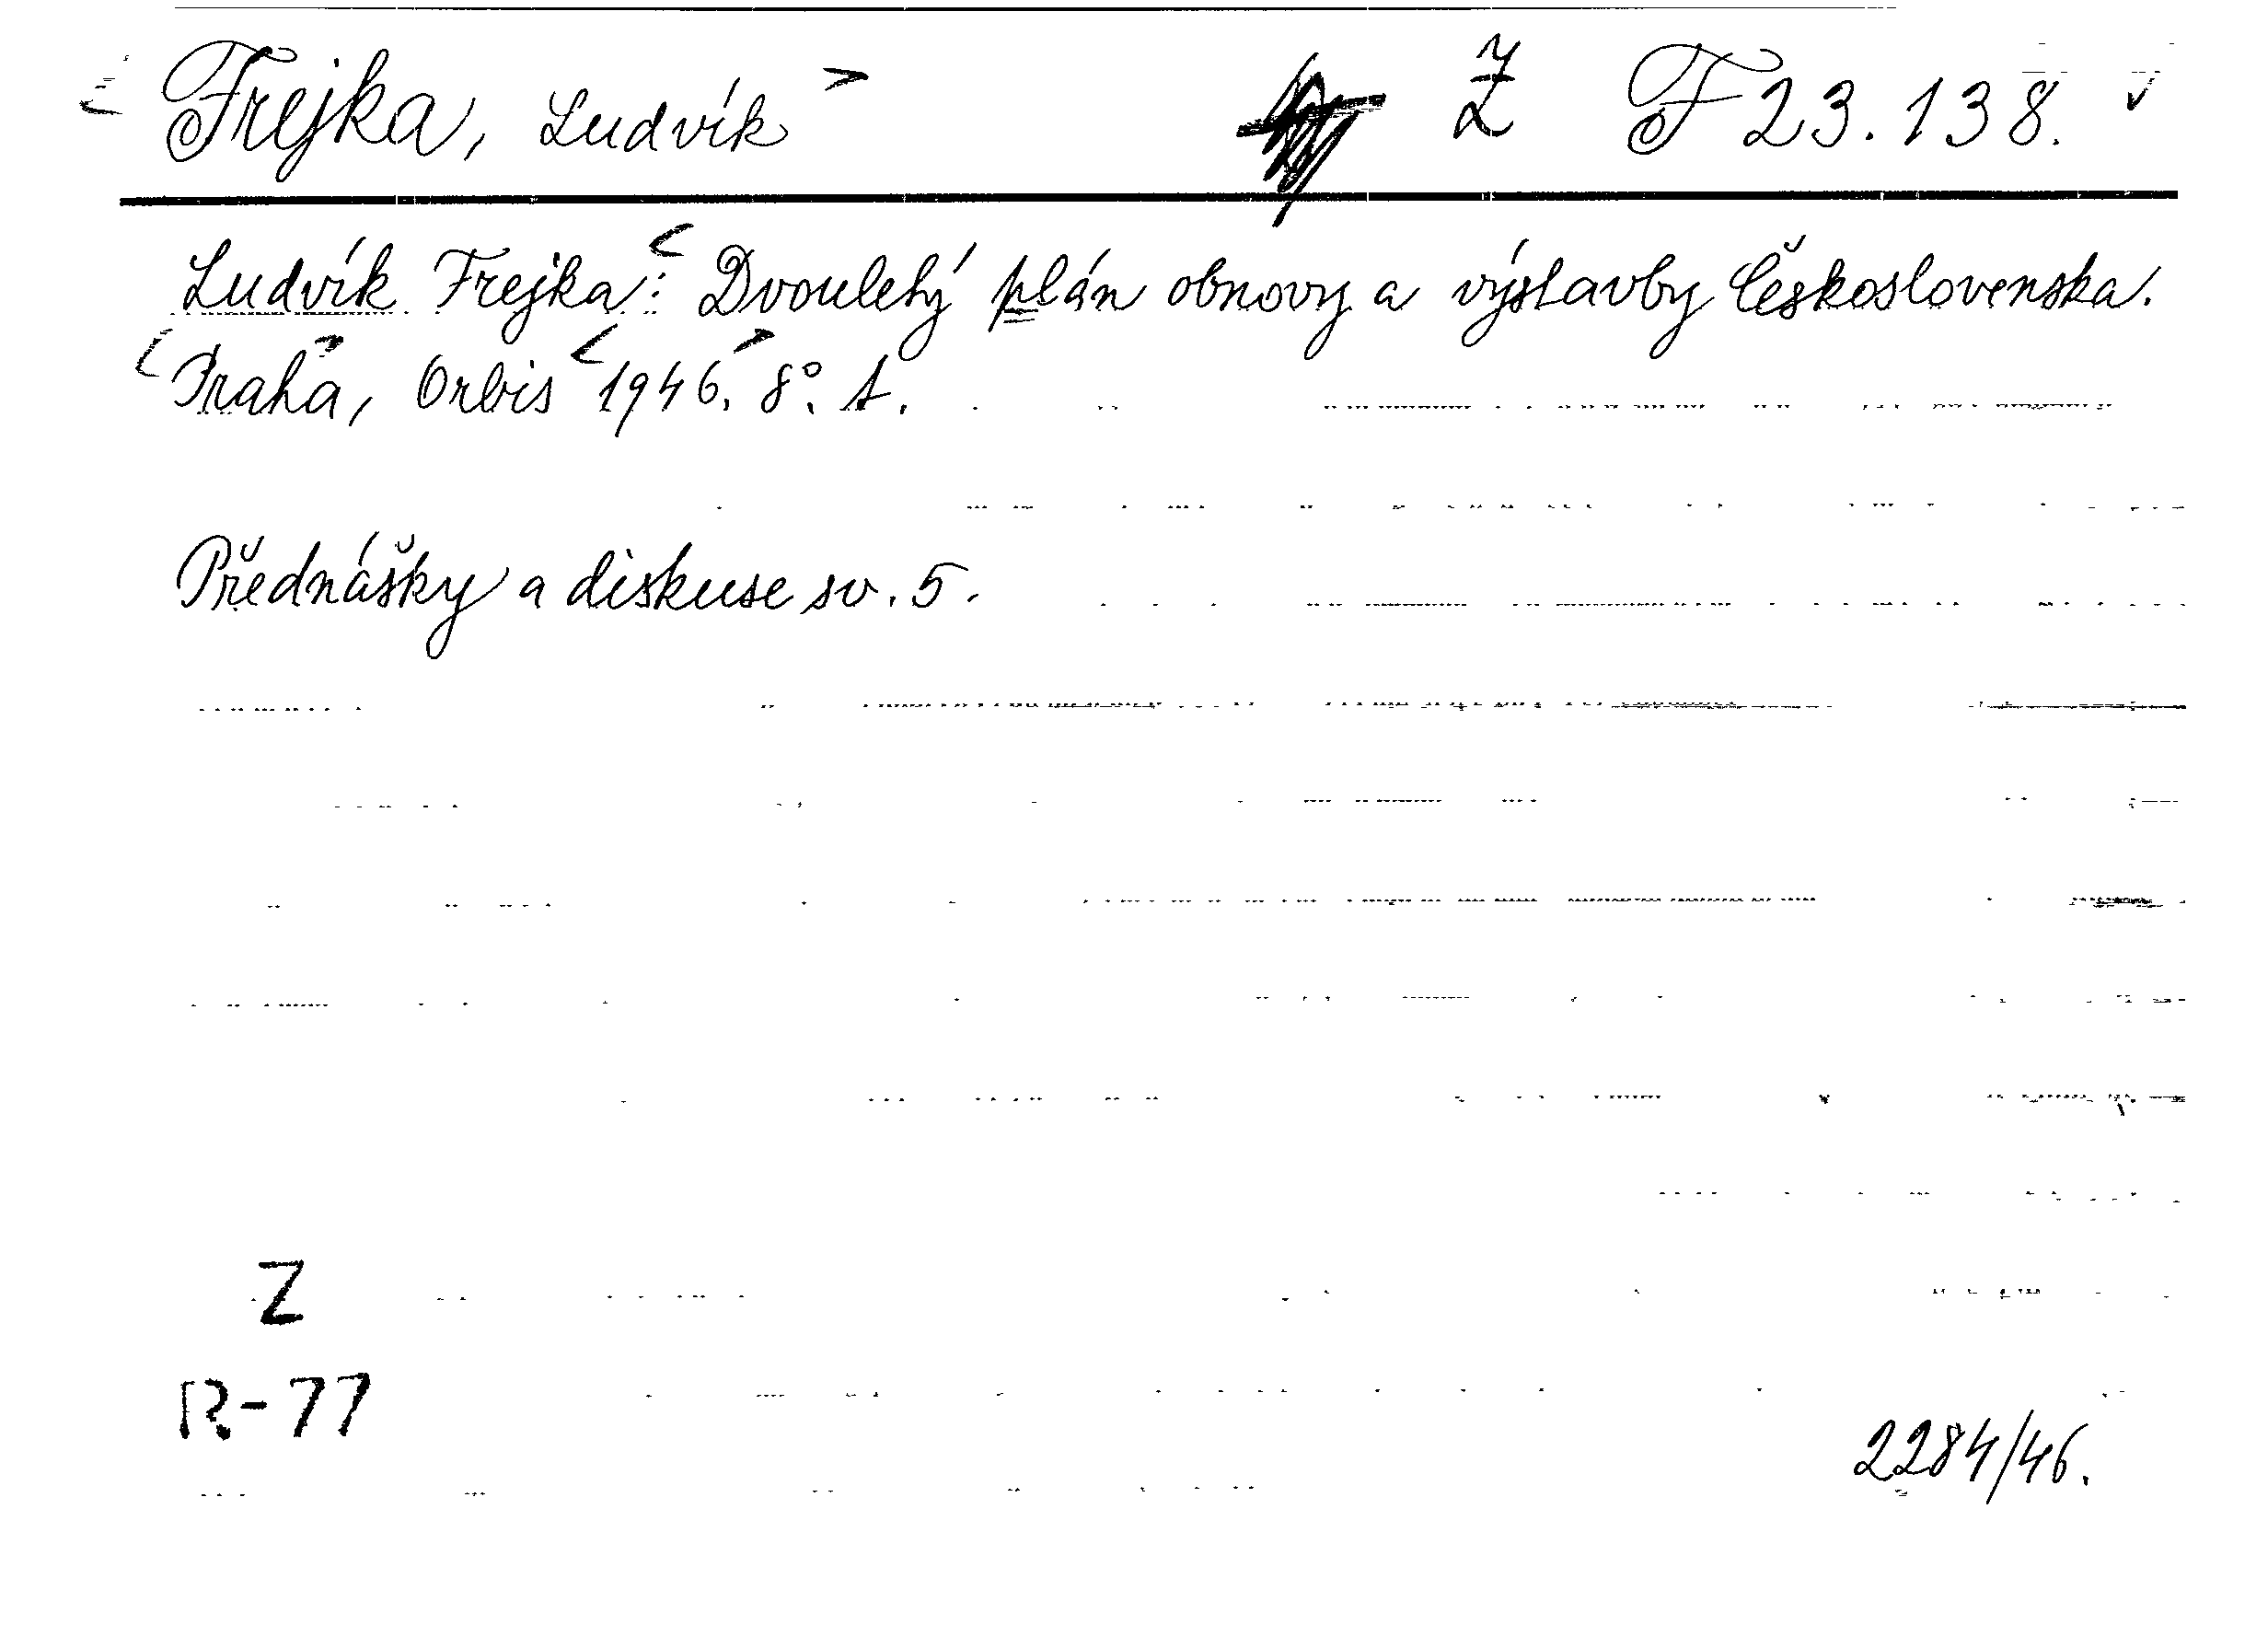 Frejka, Ludvík Ž F 23.138.
Ludvík Frejka: Dvouletý plán obnovy a výstavby Československa.
Praha, Orbis 1946. 8°. 1.
Přednášky a diskuse sv. 5.
Z
R-77
2284/46.